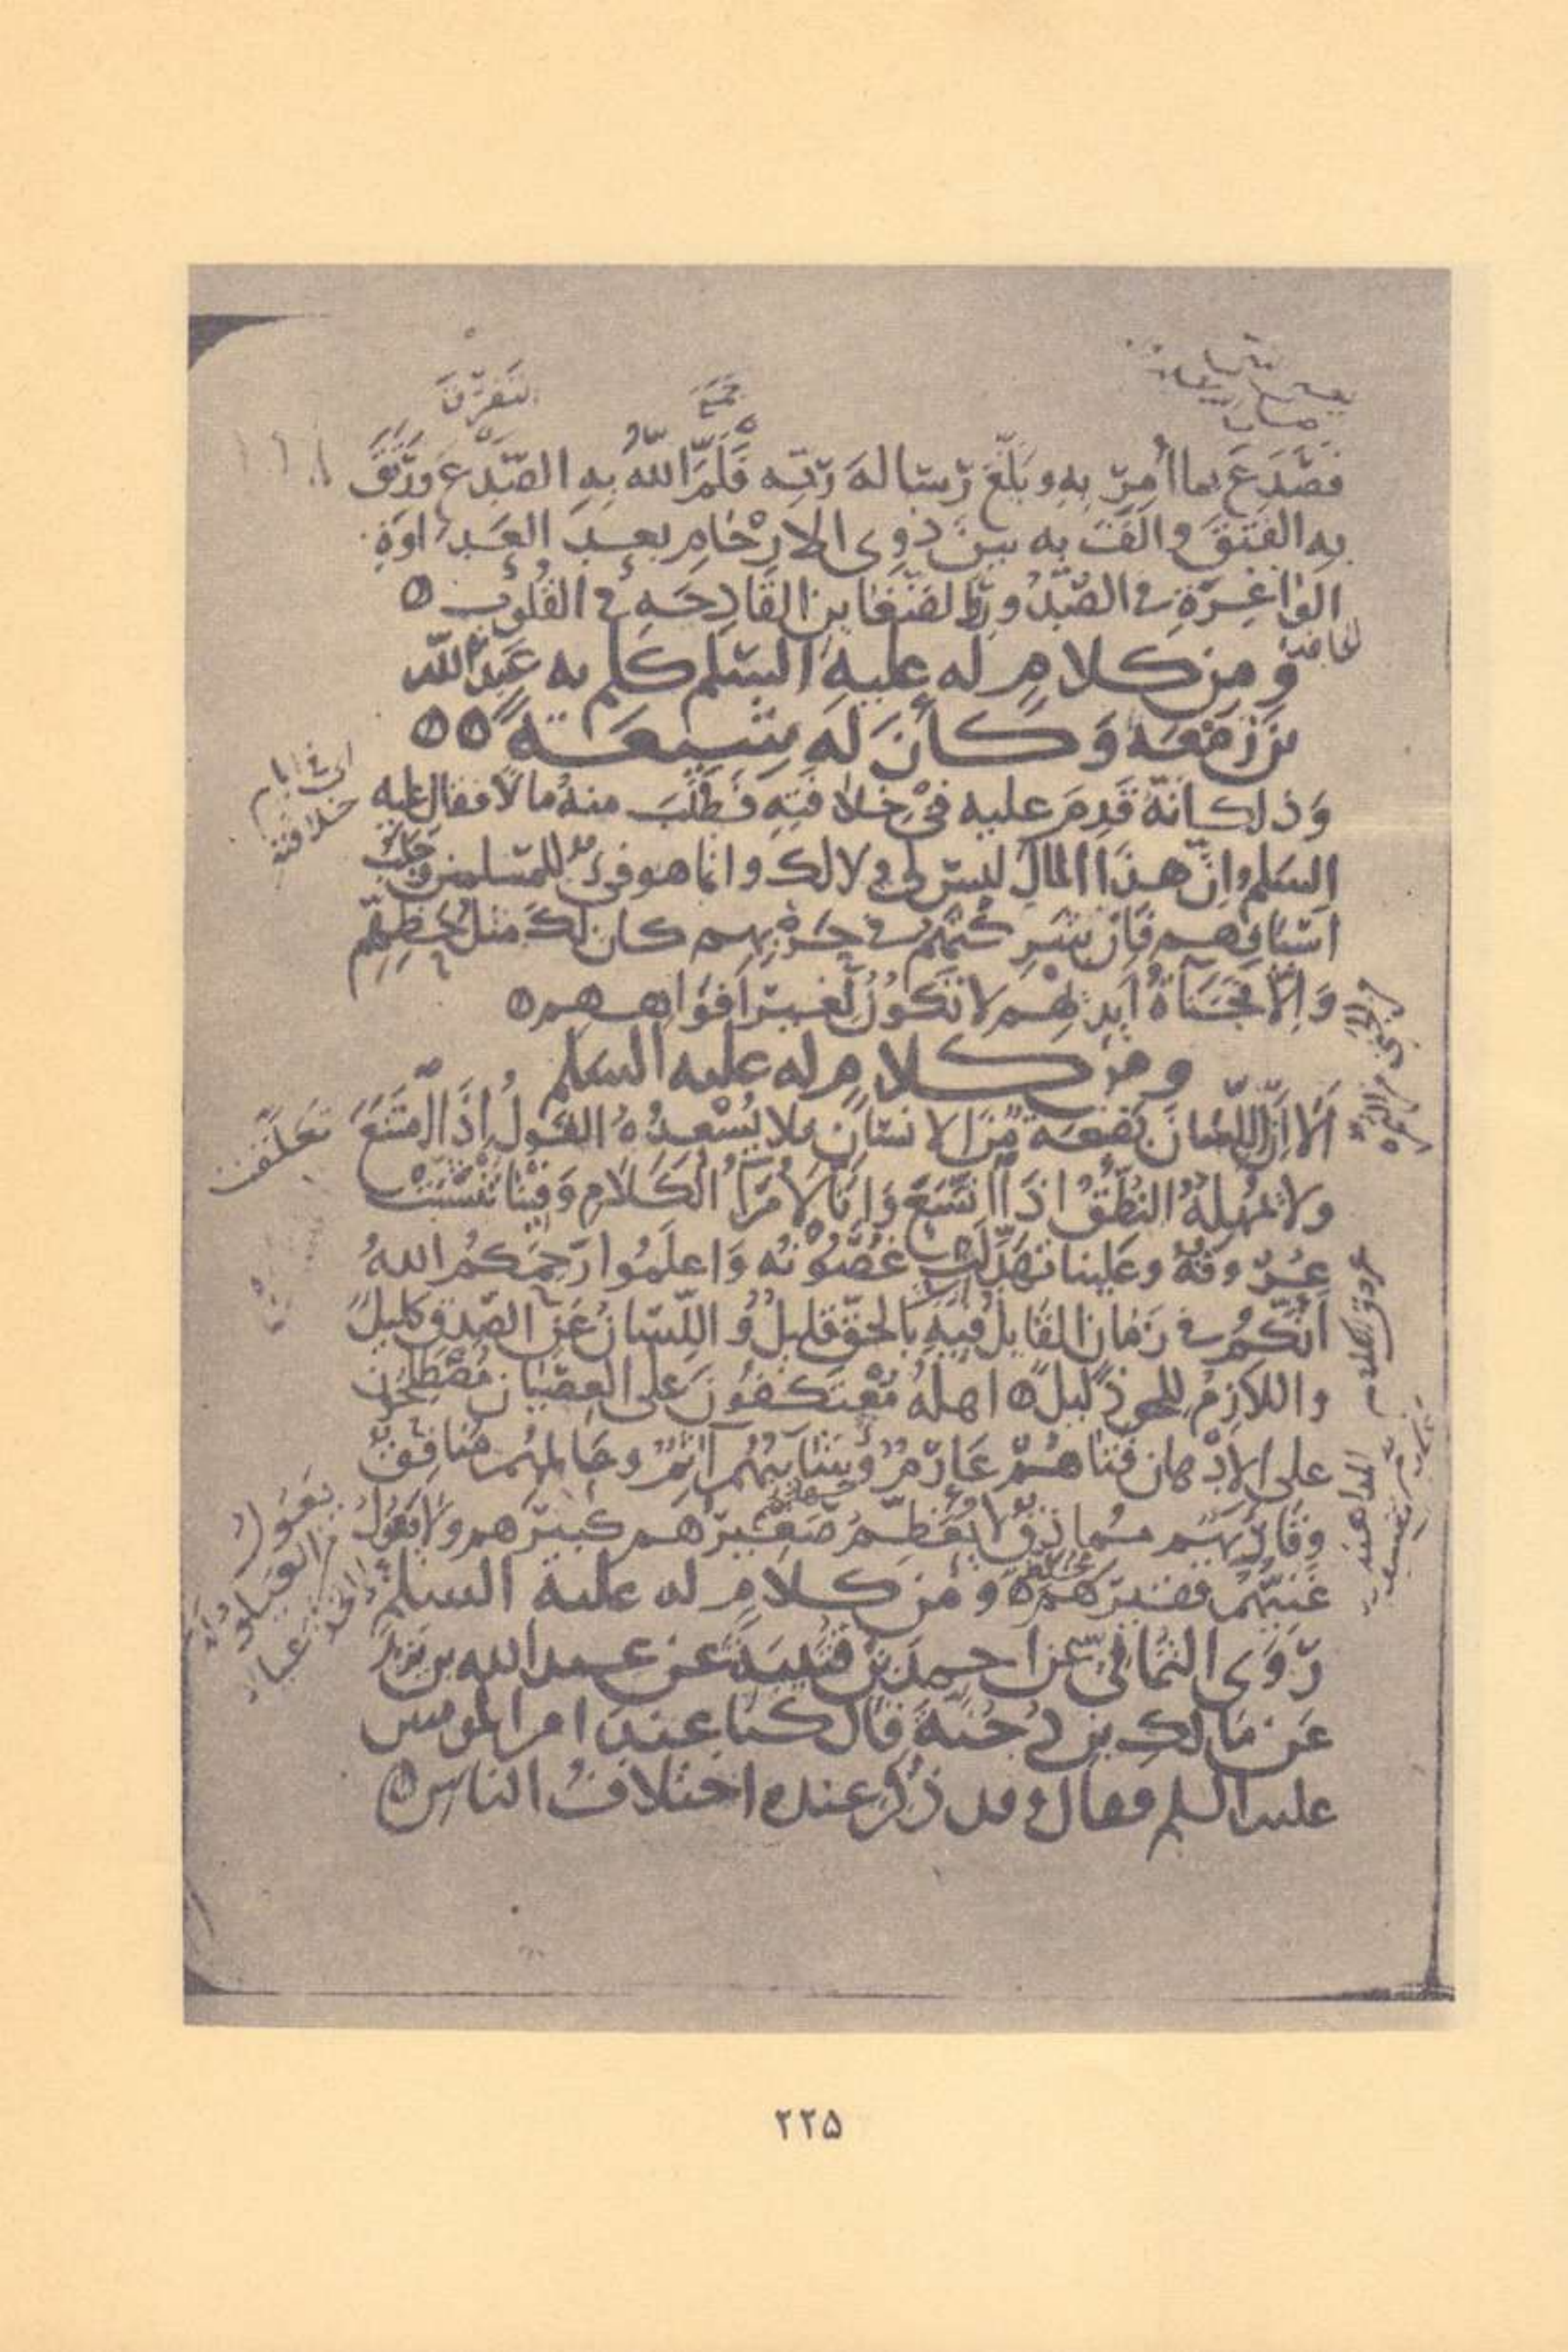 جمع
التفرّق
فَصَدَعَ بما أُمِرَ بِهِ وبَلَّغَ رِسالهَ رَبِّهِ فَلَمَّ اللّهُ بِهِ الصَّدْعَ وَرَتَقَ
بِهِ الفَتْقَ والَّفَ بِه بينَ ذوِى الارْحَامِ بعدَ العَدَاوَةِ
الوَاغِرَةِ فى الصُّدُورِ والضَّغَاينِ القَادِحَهِ فى القُلُوبِ
ومن كلامٍ له عليه السّلم كلم به عَبدَ اللّه
بن زمْعَه وَكَانَ لَه شيعَةً
وَذلك انّهُ قَدِمَ عليه فى خلافَتِهِ فَطَلَبَ منهُ مالًا فقال عليه
اى فى ايام
خلافته
السلم إنّ هذَا المالَ ليسَ لى ولا لك وانما هو فىءٌ للمسلمين وجلبُ
اسْيَافِهم فَإن شَرِكْتَهُم فى حَرْبِهِم كان لكَ مثلُ حَظِّهِم
وَإلّا فجَنَاةُ أيدِيهم لا تكونُ لغيرِ أفْوَاهِهم
ومن كلامٍ له عليه السلم
ألَا إنَّ اللّسَانَ بَضْعَةٌ مِّنَ الانسَانِ فلا يُسْعِدُهُ القَولُ إذَا امْتَنَعَ
ولا يُمهِلهُ النُّطْقُ اذَا اتَّسَعَ وَإنّا لَأُمَرَآءُ الكَلَامِ وَفِينَا تنَشَّبَتْ
عُرُوقُهُ وعَلينا تَهَدَّلَتْ غُصُونُه وَاعلَمُوا رَحِمَكُم اللهُ
أنّكُم فى زَمَانٍ القَايلُ فيهِ بالحَقّ قليلٌ وَ اللّسَانُ عَنِ الصّدق كليلٌ
واللازِمُ للحقِ ذَليلٌ اهلُهُ مُعْتَكفُونَ على العِصْيَانِ مُصْطَلِحُونَ
على الإدْهانِ فَتَاهُمْ عَارِمٌ وَشَايبُهُم آثِمٌ وعَالمُهُم مُنَافِقٌ
وَقَارِئُهُم مُماذِقٌ لا يُعَظِّمُ صَغِيرُهم كبيرَهم ولا يَعُولُ
غَنِيُّهُم فقيرَهُم ومن كلامٍ له عليه السلم
رَوَى اليَمَانىّ عن أحمدَ بن قُتَيبَةَ عن عبد الله بن يَزيدَ
عَن مَالكِ بن دِحْيَةَ قال كنا عندَ امير المومنين
عليه السلم فقال وقد ذُكِرَ عنده اختلافُ الناس
۲۲۵